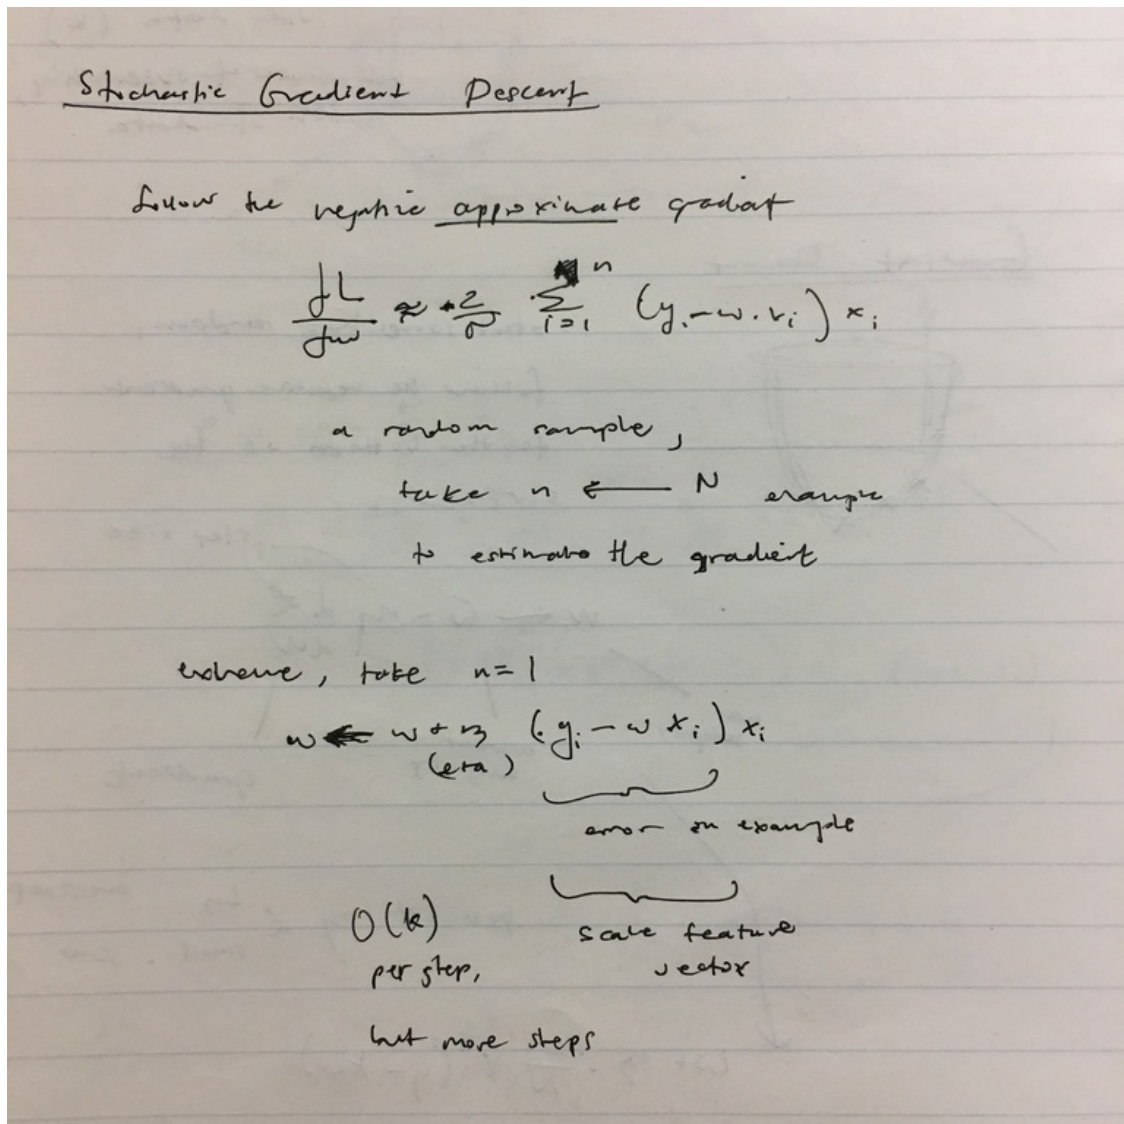 Stochastic Gradient Descent
follow the negative approximate gradient
dL/dw ≈ -2/n Σ_{i=1}^{n} (y_i - w · x_i) x_i
a random sample,
take n ← N example
to estimate the gradient
extreme, take n = 1
w ← w + η (y_i - w x_i) x_i
(eta)
error on example
O(k)
scale feature
per step,
vector
but more steps